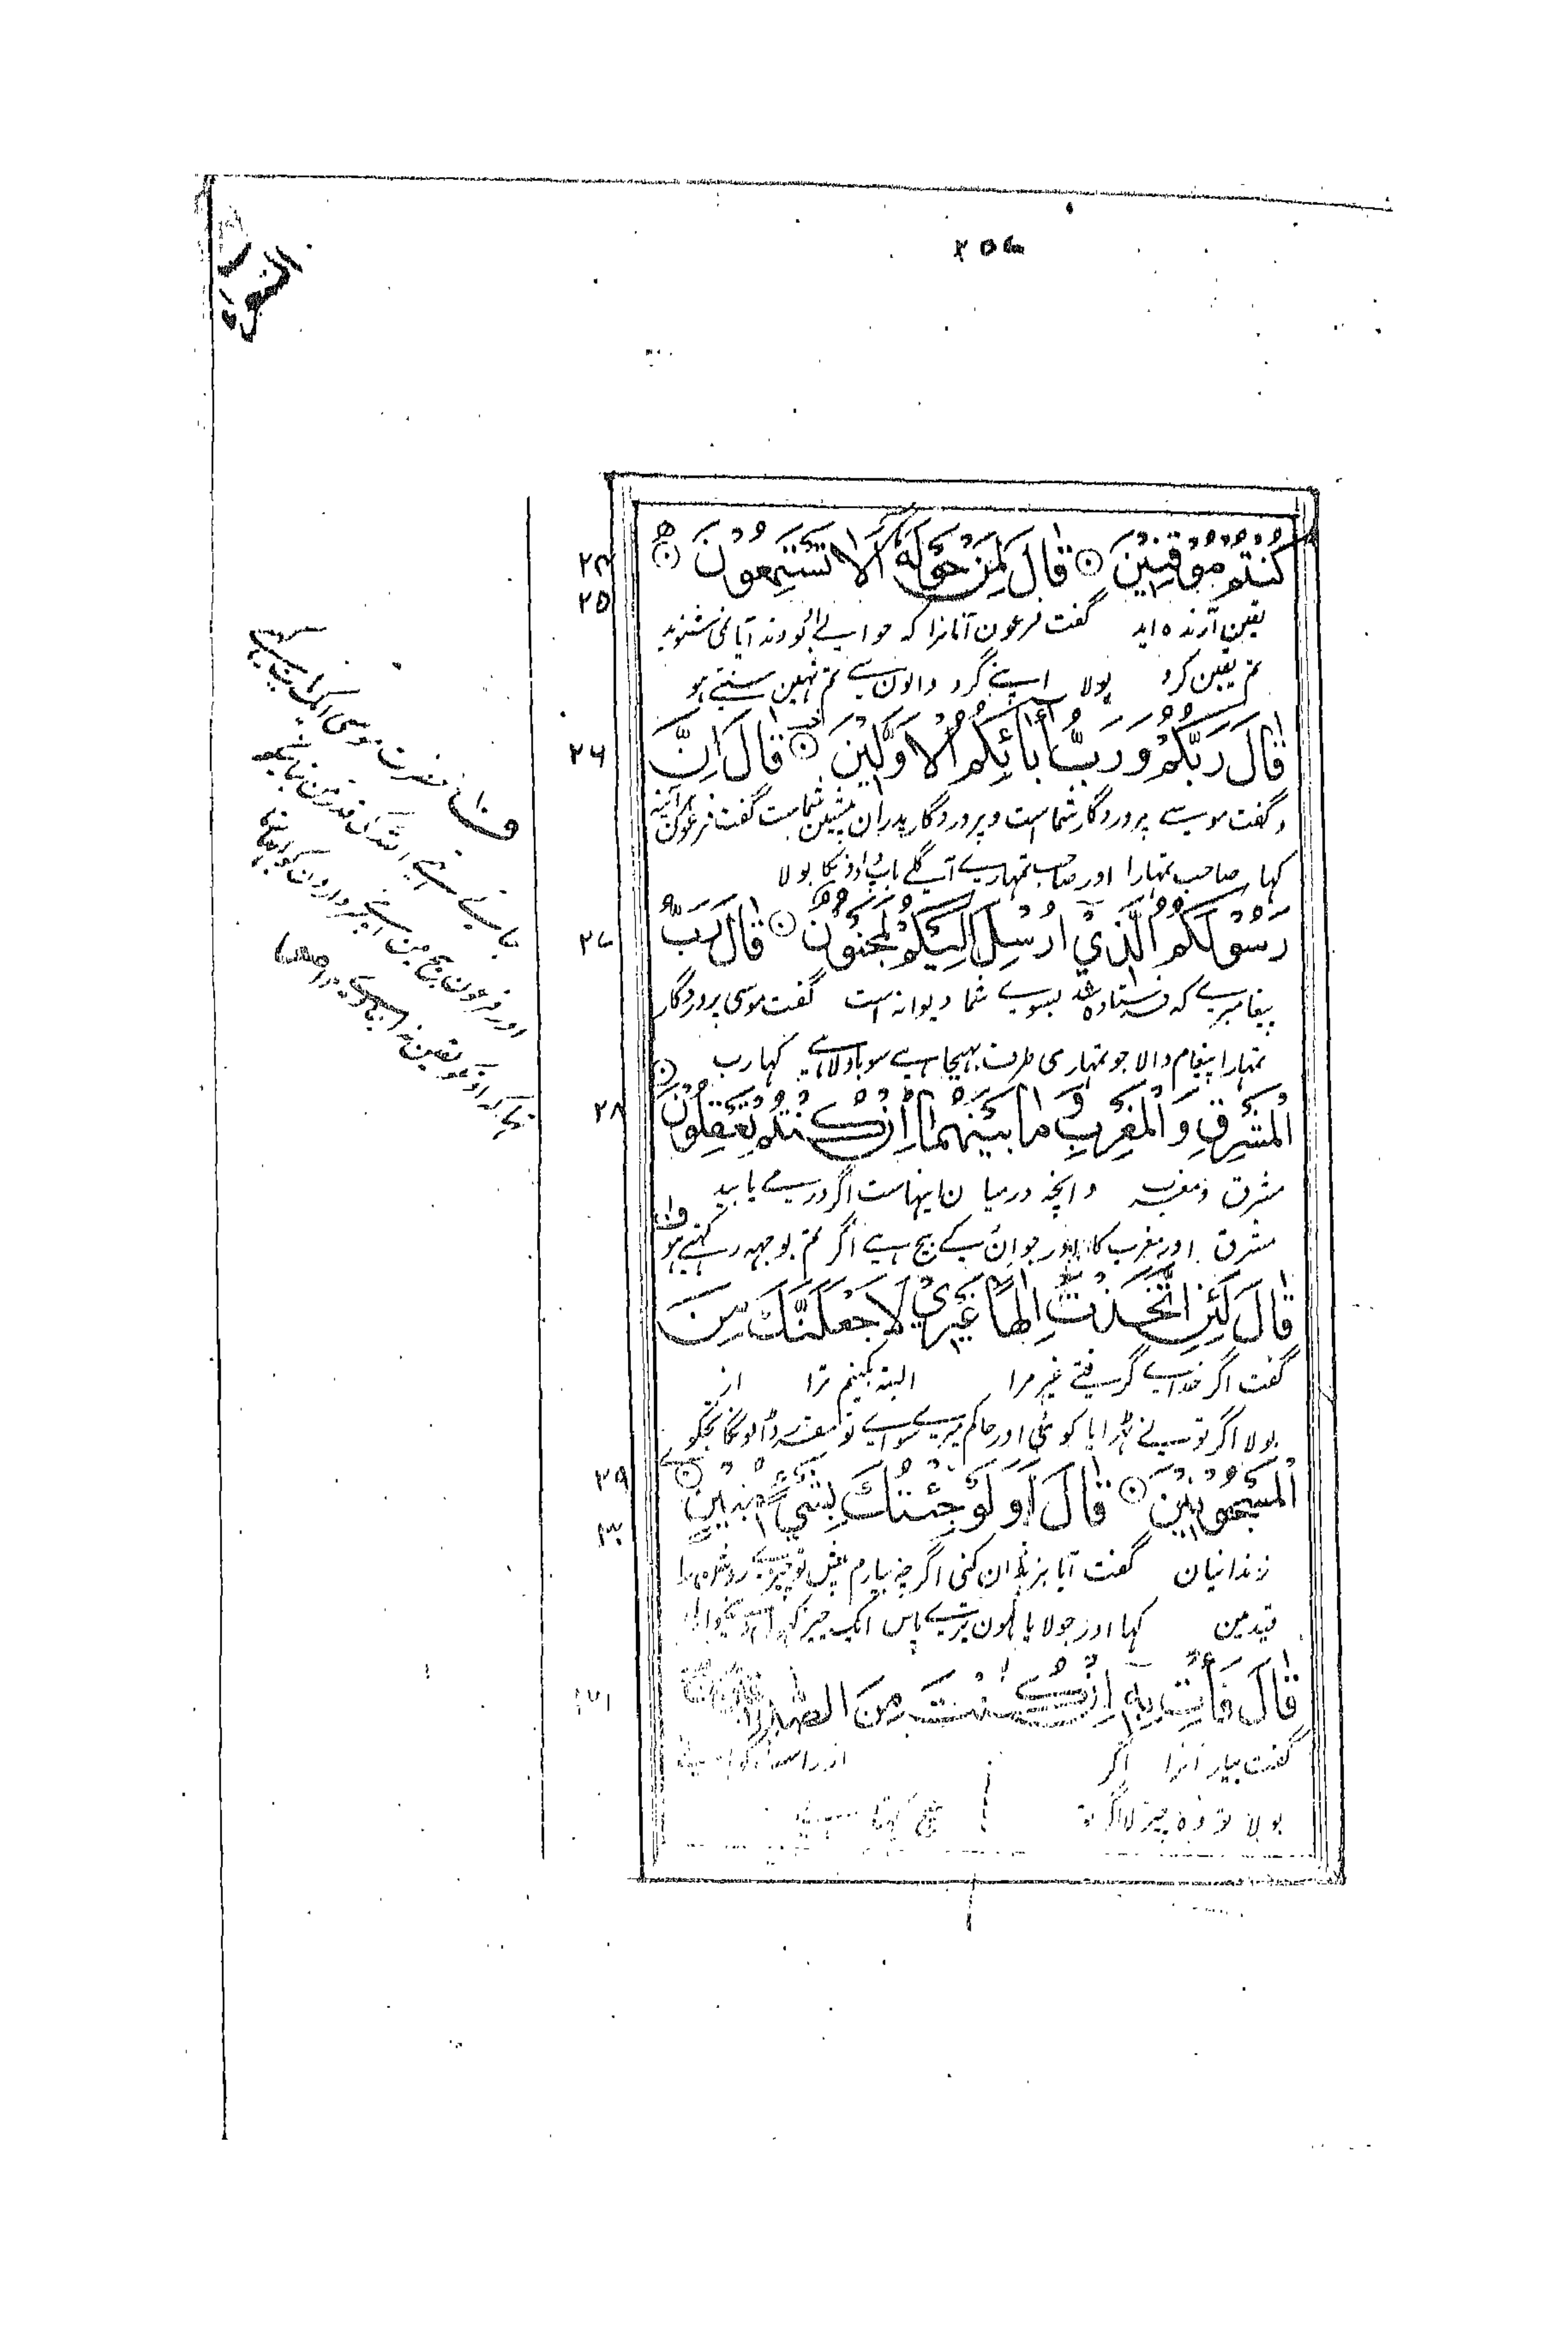 ۲۵۷
الشعراء
كُنْتُمْ مُوْقِنِيْنَ ۝ قَالَ لِمَنْ حَوْلَهٗ اَلَا تَسْتَمِعُوْنَ ۝
۲۴
۲۵
یقین آرنده اید گفت فرعون آنانرا که حوالے او بودند آیا نمی شنوید
تم یقین کرو بولا اپنے گرد والون سے تم نہین سنتے ہو
قَالَ رَبُّكُمْ وَرَبُّ اٰبَآئِكُمُ الْاَوَّلِيْنَ ۝ قَالَ اِنَّ
۲۶
گفت موسے پروردگار شما است و پروردگار پدران پیشین شماست گفت فرعون هر آئینه
کہا صاحب تمہارا اور صاحب تمہارے اگلے باپ دادونکا بولا
رَسُوْلَكُمُ الَّذِيْ اُرْسِلَ اِلَيْكُمْ لَمَجْنُوْنٌ ۝ قَالَ رَبُّ
۲۷
پیغامبرے که فرستاده شد بسوے شما دیوانه است گفت موسی پروردگار
تمہارا پیغام والا جو تمہاری طرف بہیجا ہے سو باولا ہے کہا رب
الْمَشْرِقِ وَالْمَغْرِبِ وَمَا بَيْنَهُمَا اِنْ كُنْتُمْ تَعْقِلُوْنَ ۝
۲۸
مشرق و مغرب و آنچه درمیان اینهاست اگر در مے یابید
مشرق اور مغرب کا اور جو ان کے بیچ ہے اگر تم بوجہہ رکہتے ہو ف۱
قَالَ لَئِنِ اتَّخَذْتَ اِلٰهًا غَيْرِيْ لَاَجْعَلَنَّكَ مِنَ
گفت اگر خداے گرفتے غیر مرا البته بکنم ترا از
بولا اگر تو نے ٹہرایا کوئی اور حاکم میرے سواے تو مقرر ڈالونگا تجکو
الْمَسْجُوْنِيْنَ ۝ قَالَ اَوَلَوْ جِئْتُكَ بِشَيْءٍ مُّبِيْنٍ ۝
۲۹
۳۰
زندانیان گفت آیا بزندان کنی اگرچه بیارم پیش تو چیزے روشن را
قید مین کہا اور جو لایا ہون تیرے پاس ایک چیز
قَالَ فَاْتِ بِهٖٓ اِنْ كُنْتَ مِنَ الصّٰدِقِيْنَ
۳۱
گفت بیار آنرا اگر از راست
بولا تو وه چیز لا اگر تو سچ کہتا
ف۱ حضرت موسی ایک بات کہے
جاتے تہے اللہ کی قدرتین بتانیکو
اور فرعون بیچ مین اپنے سردارون کو اوبہارتا
تہا کہ اونکو یقین نہ آجاوے